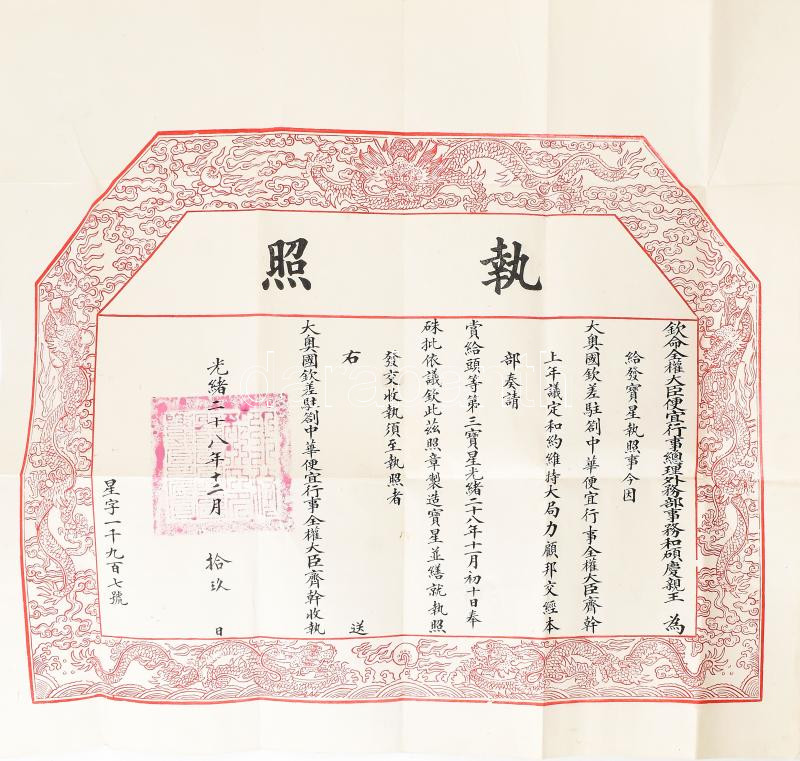 執照
欽命全權大臣便宜行事總理外務部事務和碩慶親王 為
給發寶星執照事今因
大奧國欽差駐劄中華便宜行事全權大臣齊幹
上年議定和約維持大局力顧邦交經本
部奏請
賞給頭等第三寶星光緒二十八年十一月初十日奉
硃批依議欽此茲照章製造寶星並繕就執照
發交收執須至執照者
右 送
大奧國欽差駐劄中華便宜行事全權大臣齊幹收執
光緒二十八年十二月 拾玖 日
星字一千九百七號